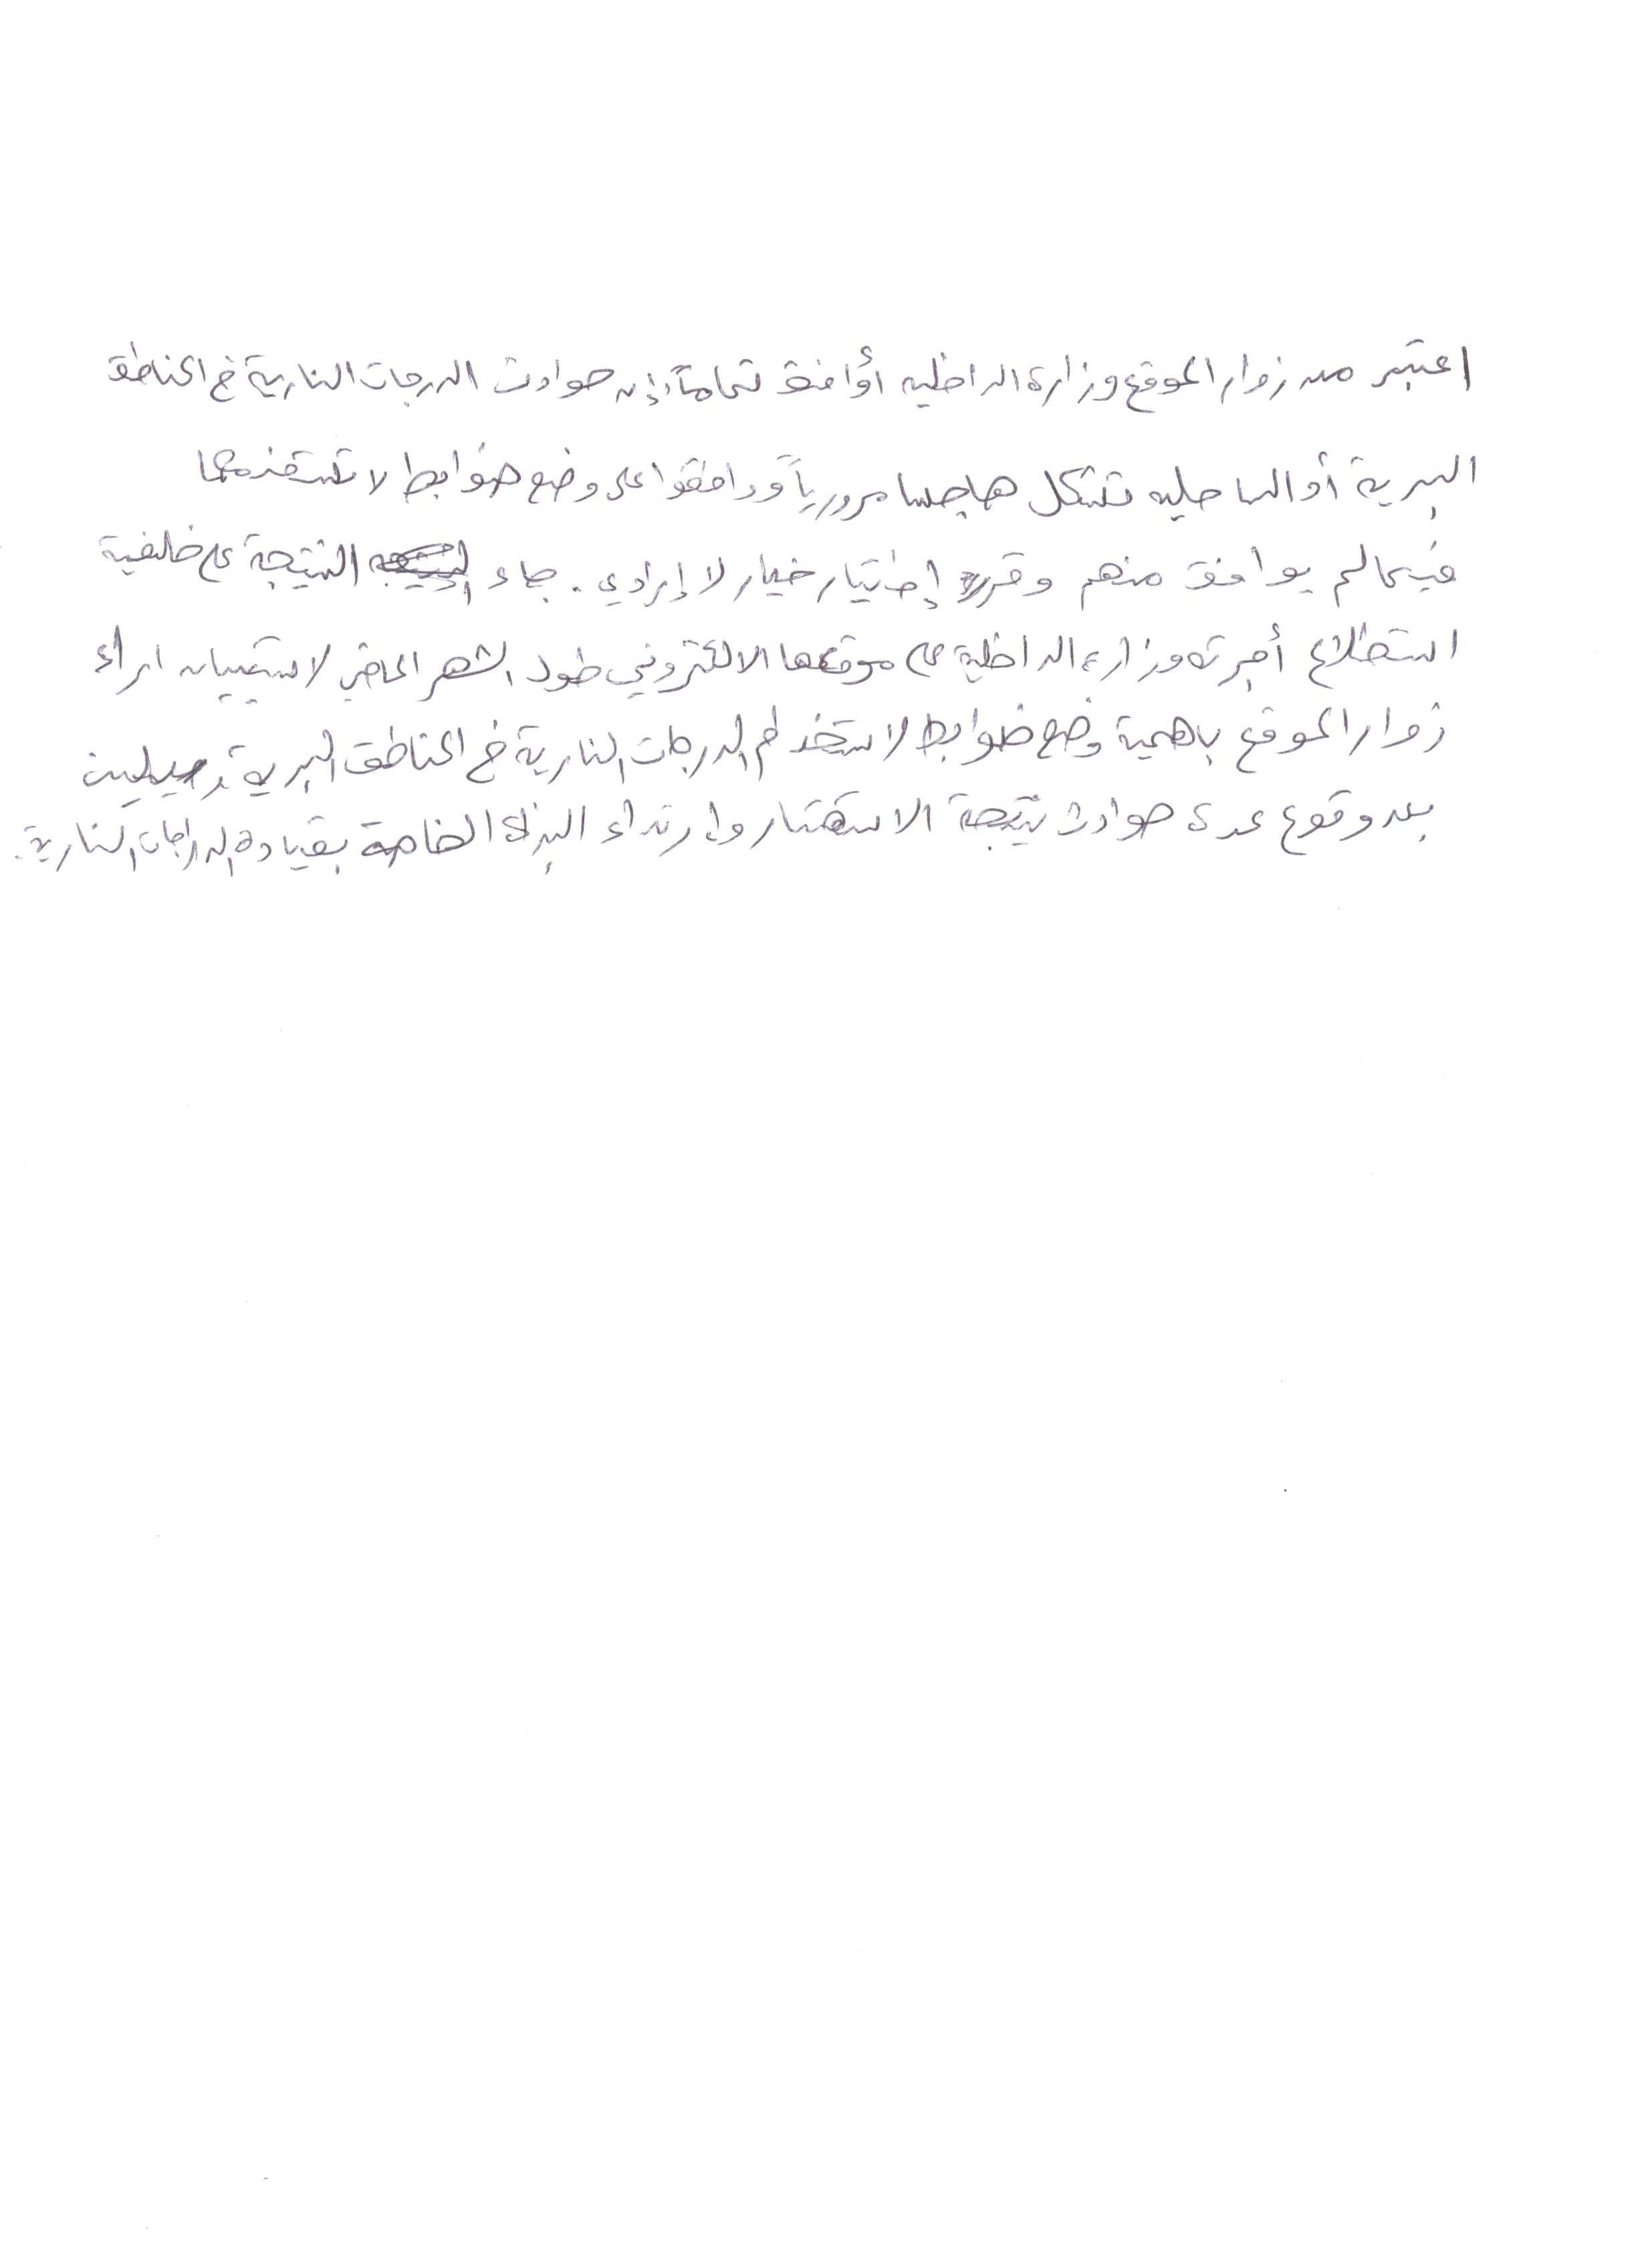 اعتبر من زوار الموقع وزارة الداخليه أوافق تماماً إن حوادث الدرجات النارية في المناطق
البرية أو الساحليه تشكل هاجسا مرورياً ووافقوا على وضع ضوابط لا
فيما لم يوافق منهم وقرر إختيار خيار لا إرادي. جاء النتيجة على خلفية
استطلاع أجرته وزارة الداخلية على موقعها الالكتروني طول الشهر الماضي لاستبيان اراء
زوار الموقع باهمية وضع ضوابط لاستخدام الدرجات النارية في المناطق البرية
بعد وقوع عدة حوادث نتيجة الاستهتار وارتداء البذلة الخاصة بقيادة الدراجات النارية.